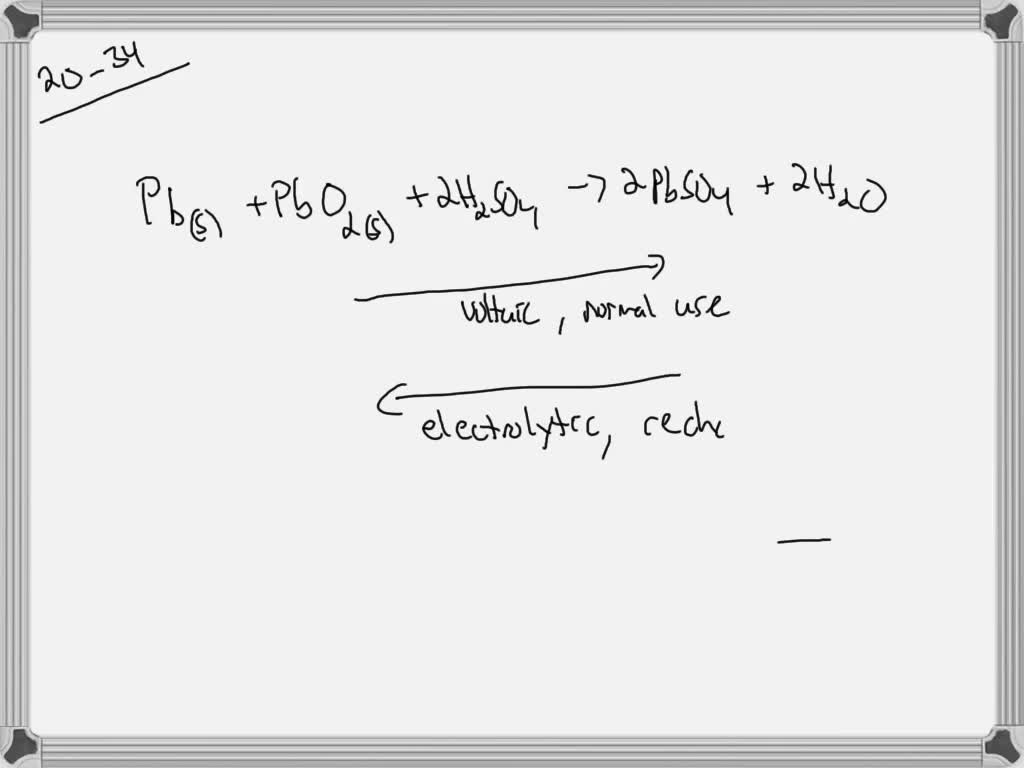 20-34
Pb(s) + PbO2(s) + 2H2SO4 → 2PbSO4 + 2H2O
voltaic, normal use
electrolytic,